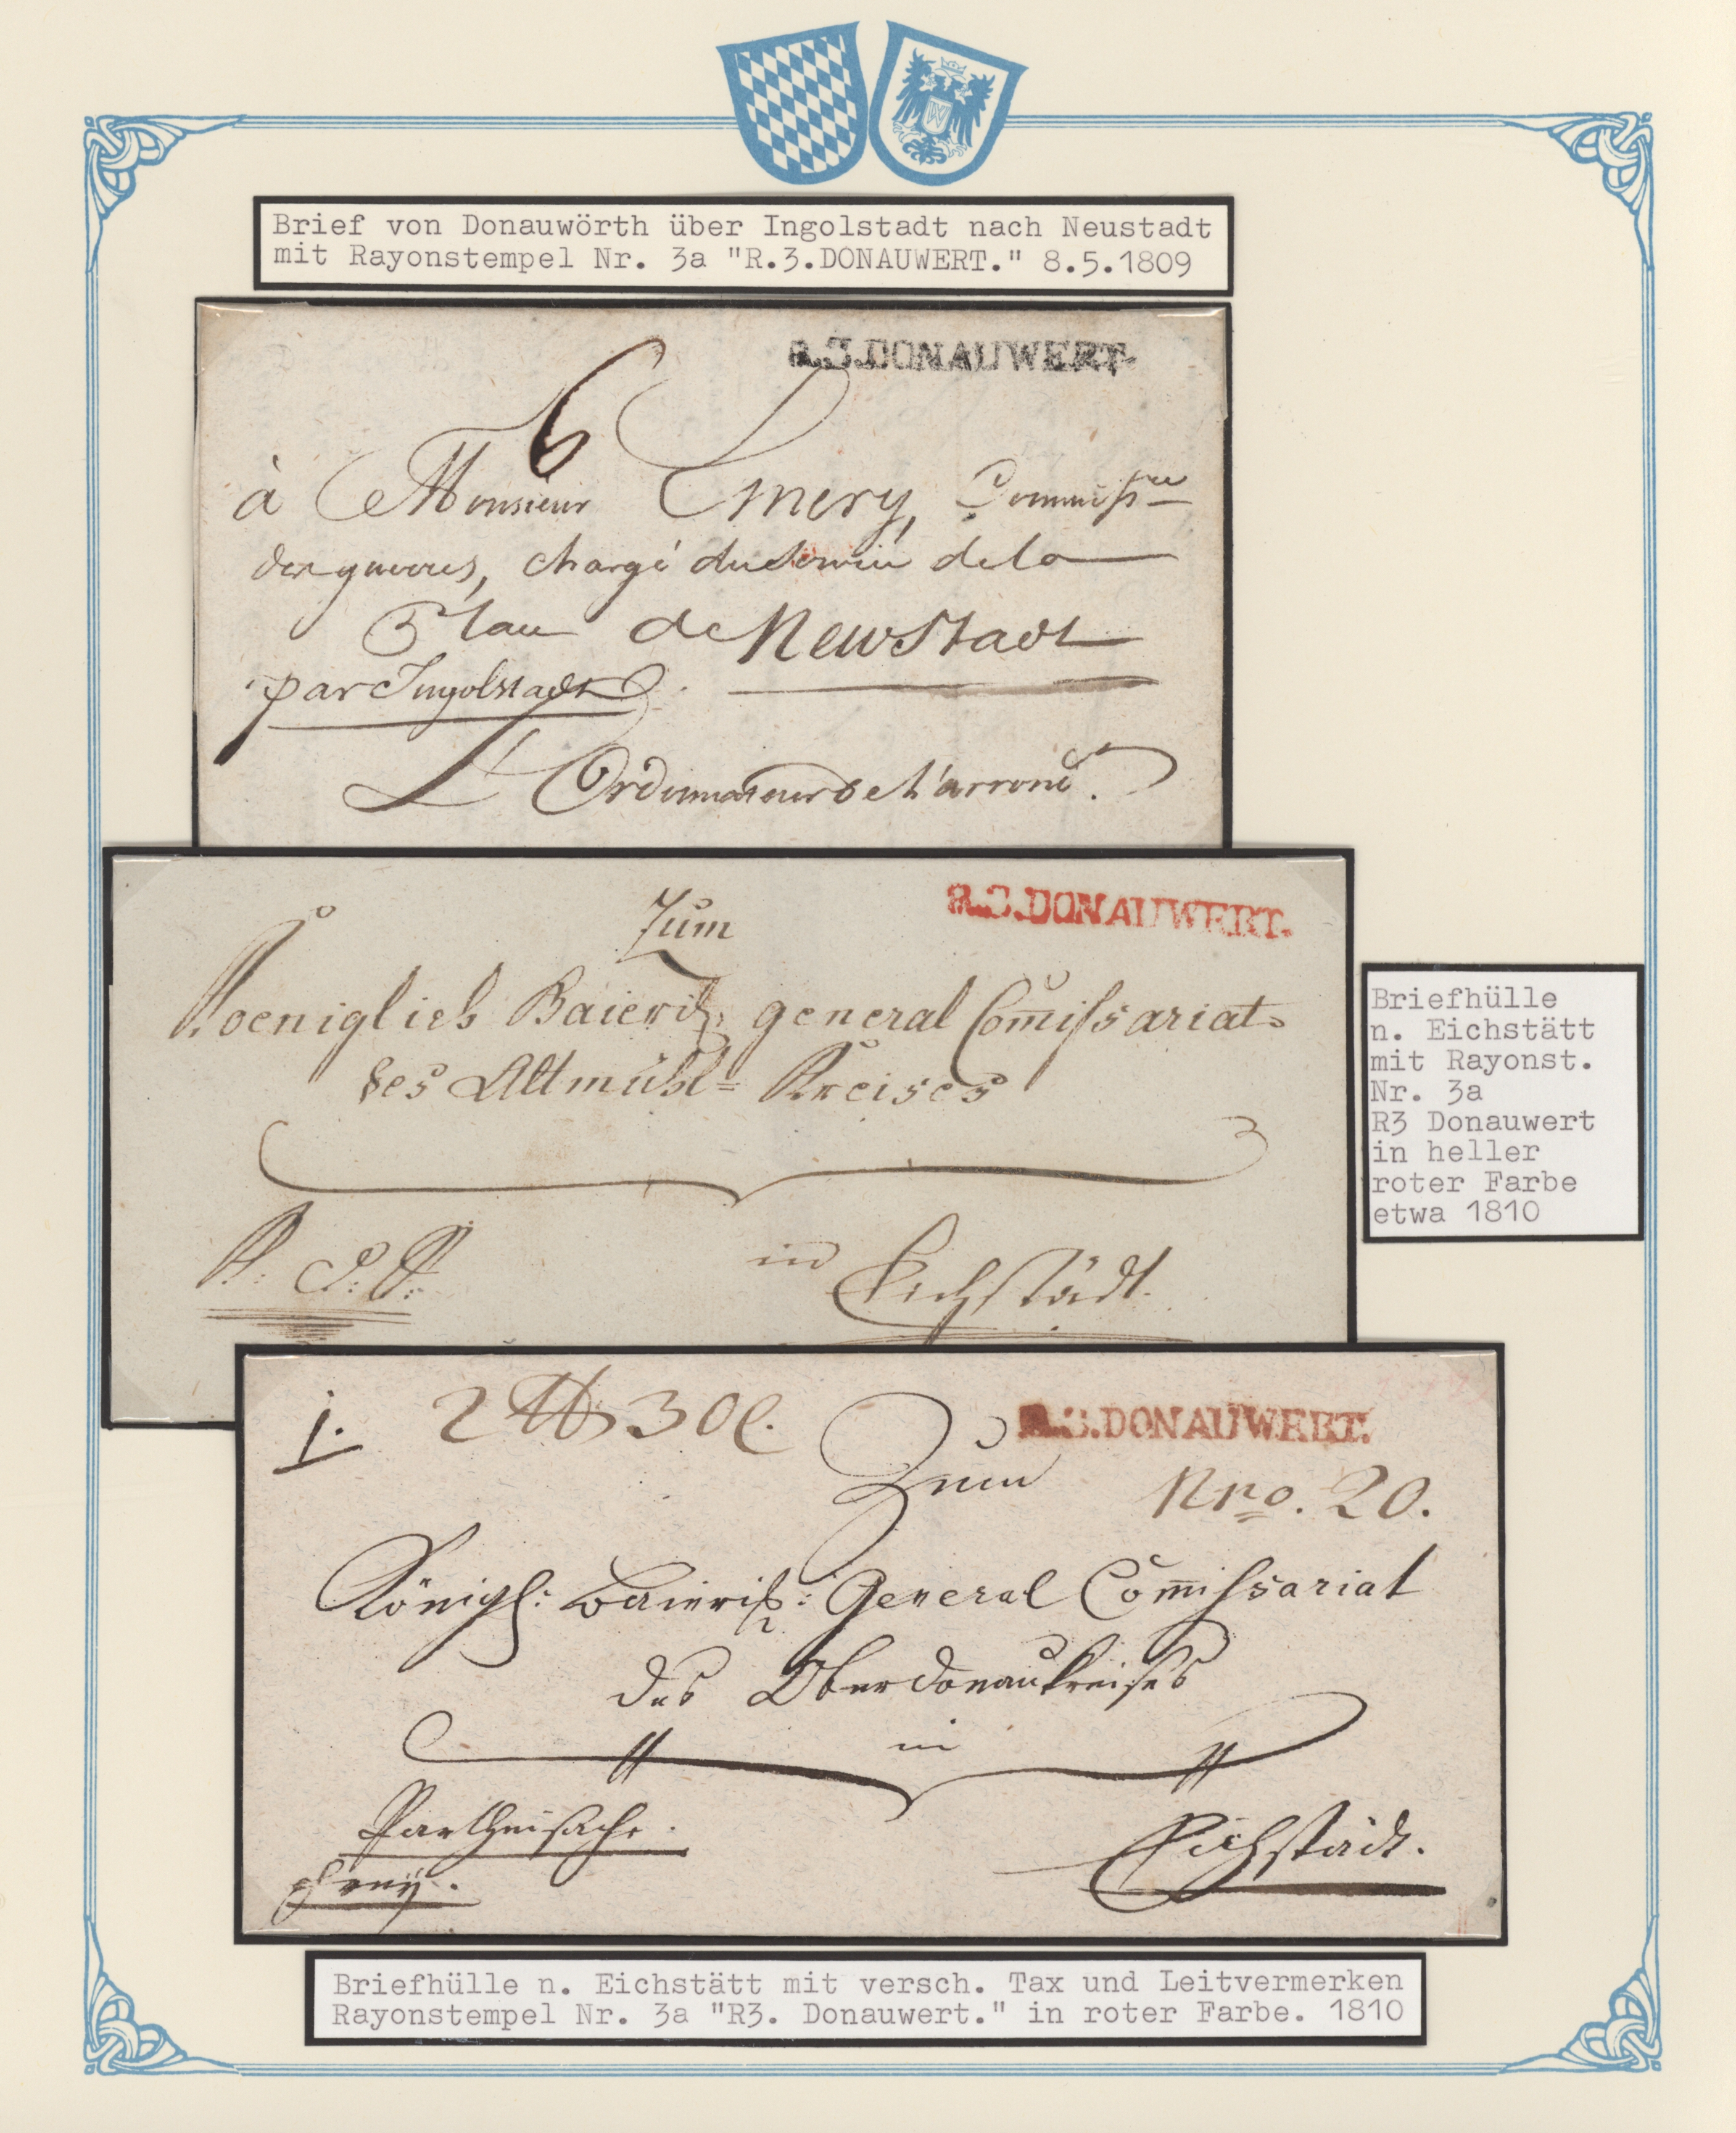 Brief von Donauwörth über Ingolstadt nach Neustadt
mit Rayonstempel Nr. 3a "R.3.DONAUWERT." 8.5.1809
R.3.DONAUWERT.
6
à Monsieur Emery, Commissre
des guerres, chargé du Service de la
Place de Newstadt
par Ingolstadt
L'Ordonnateur de l'arrond.
R.3.DONAUWERT.
Zum
Koeniglich Baierisch: general Com̄issariat
des Altmühl=Kreises
in Eichstädt.
Briefhülle
n. Eichstätt
mit Rayonst.
Nr. 3a
R3 Donauwert
in heller
roter Farbe
etwa 1810
1. 2 ℔ 30
R.3.DONAUWERT.
Zum
Nro. 20.
Königl: Baierisch: General Com̄issariat
des Oberdonaukreises
in
Partheisache.
Eichstädt.
frey.
Briefhülle n. Eichstätt mit versch. Tax und Leitvermerken
Rayonstempel Nr. 3a "R3. Donauwert." in roter Farbe. 1810